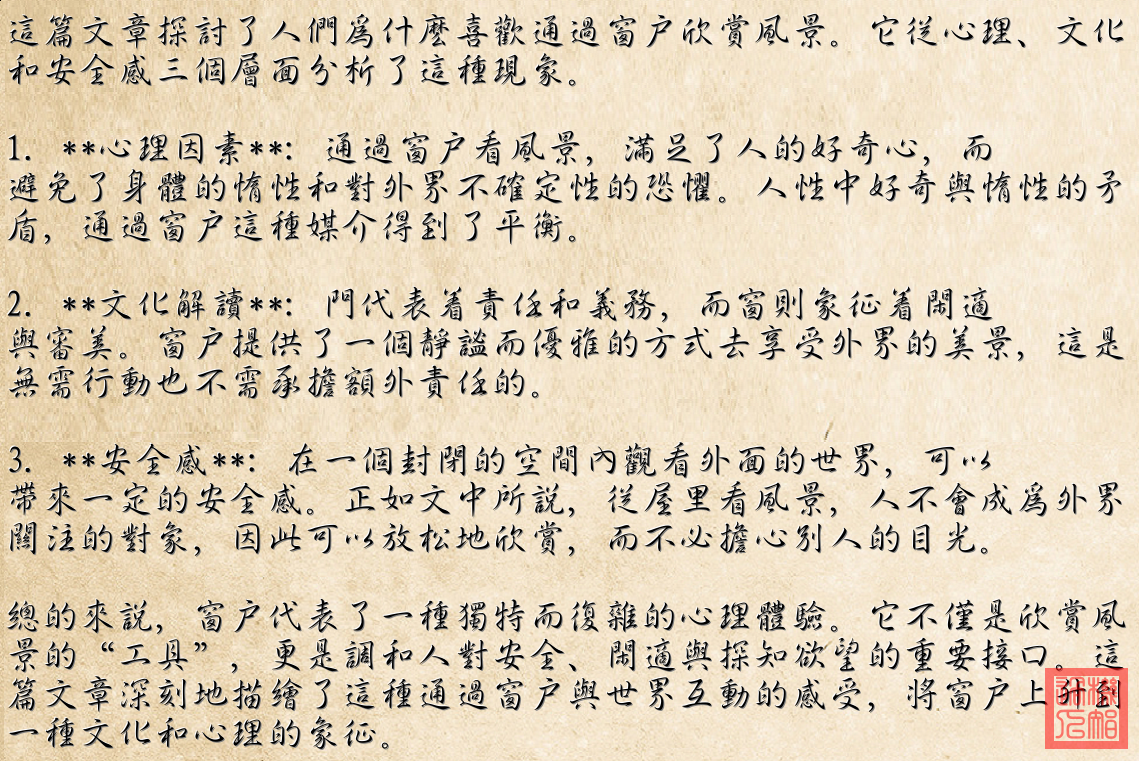 這篇文章探討了人們爲什麽喜歡通過窗户欣賞風景。它從心理、文化
和安全感三個層面分析了這種現象。
1. **心理因素**：通過窗户看風景，滿足了人的好奇心，而
避免了身體的惰性和對外界不確定性的恐懼。人性中好奇與惰性的矛
盾，通過窗户這種媒介得到了平衡。
2. **文化解讀**：門代表着責任和義務，而窗則象征着閑適
與審美。窗户提供了一個靜謐而優雅的方式去享受外界的美景，這是
無需行動也不需承擔額外責任的。
3. **安全感**：在一個封閉的空間內觀看外面的世界，可以
帶來一定的安全感。正如文中所説，從屋里看風景，人不會成爲外界
關注的對象，因此可以放松地欣賞，而不必擔心别人的目光。
總的來説，窗户代表了一種獨特而復雜的心理體驗。它不僅是欣賞風
景的“工具”，更是調和人對安全、閑適與探知欲望的重要接口。這
篇文章深刻地描繪了這種通過窗户與世界互動的感受，將窗户上升到
一種文化和心理的象征。